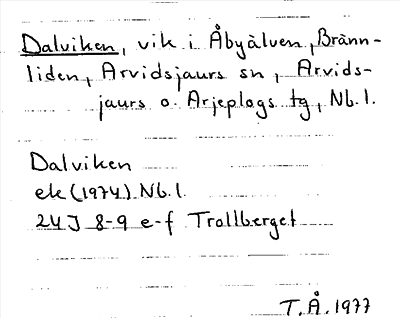 Dalviken, vik i Åbyälven, Bränn-
liden, Arvidsjaurs sn, Arvids-
jaurs o. Arjeplogs tg, Nb. l.
Dalviken
ek (1974) Nb. l.
24J 8-9 e-f Trollberget
T. Å. 1977